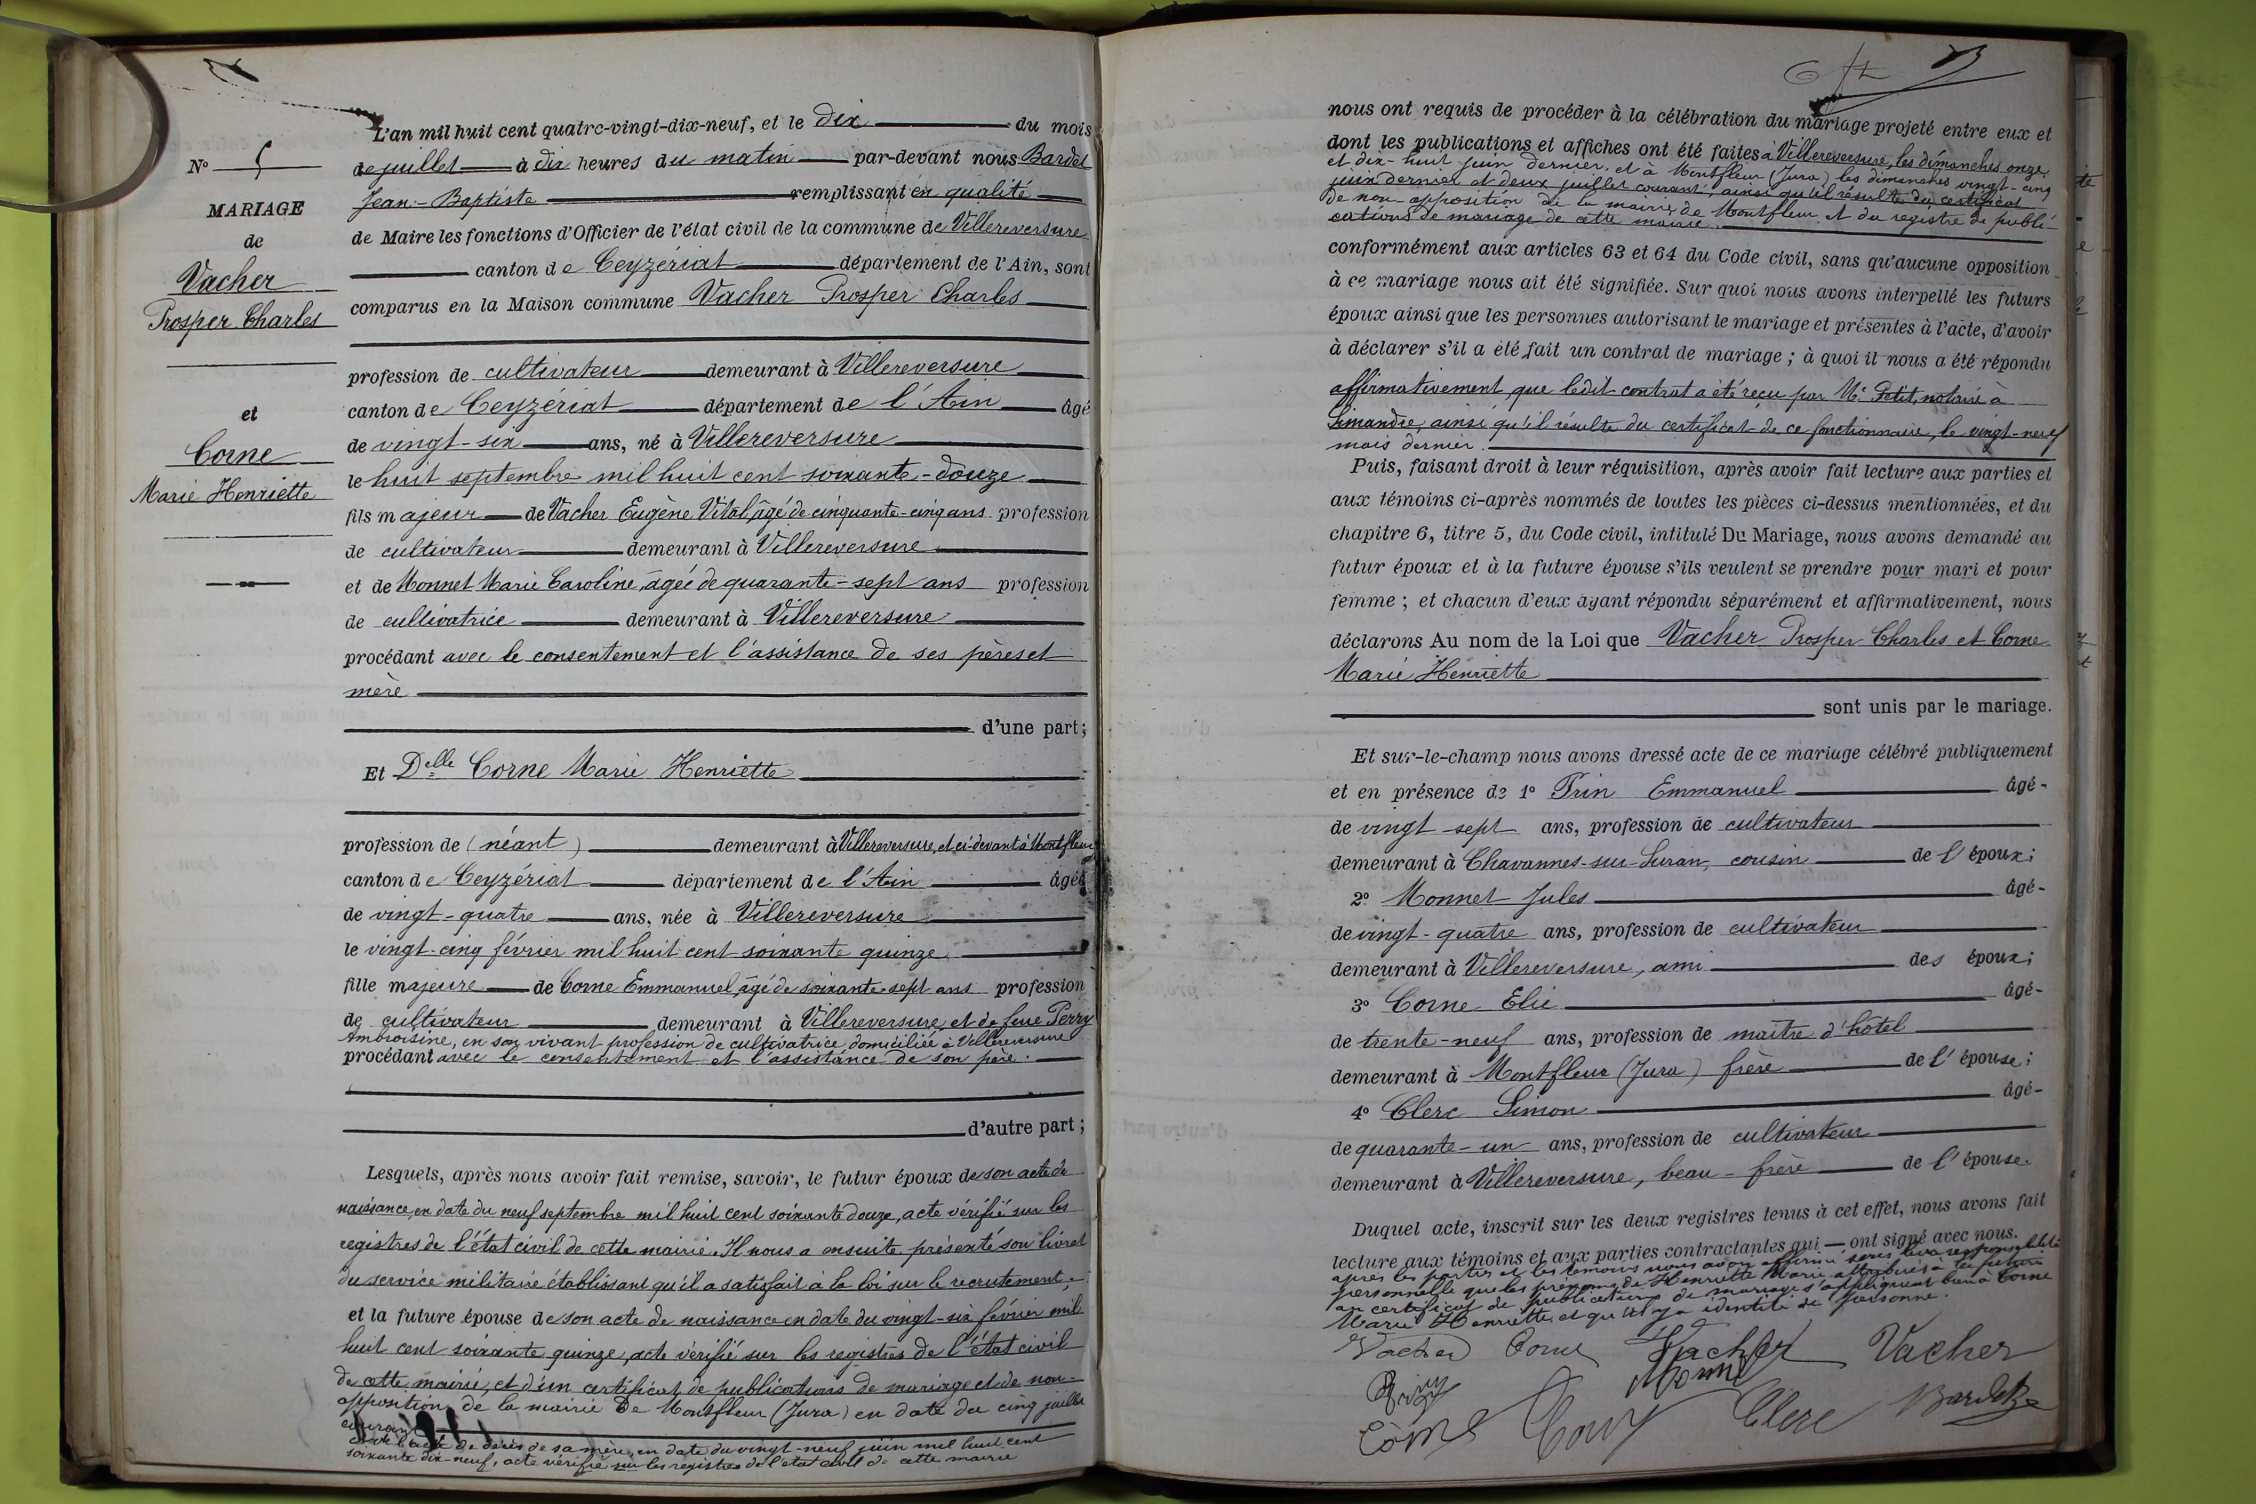 N° 5
MARIAGE
de
Vacher
Prosper Charles
et
Corne
Marie Henriette
L'an mil huit cent quatre-vingt-dix-neuf, et le dix du mois
de juillet à dix heures du matin par-devant nous Bardet
Jean-Baptiste remplissant en qualité
de Maire les fonctions d'Officier de l'état civil de la commune de Villereversure
canton de Ceyzériat département de l'Ain, sont
comparus en la Maison commune Vacher Prosper Charles
profession de cultivateur demeurant à Villereversure
canton de Ceyzériat département de l'Ain âgé
de vingt-six ans, né à Villereversure
le huit septembre mil huit cent soixante-douze
fils majeur de Vacher Eugène Vital, âgé de cinquante-cinq ans profession
de cultivateur demeurant à Villereversure
et de Monnet Marie Caroline, âgée de quarante-sept ans profession
de cultivatrice demeurant à Villereversure
procédant avec le consentement et l'assistance de ses pères et
mère
d'une part;
Et Delle Corne Marie Henriette
profession de (néant) demeurant à Villereversure, et ci-devant à Montfleur
canton de Ceyzériat département de l'Ain âgée
de vingt-quatre ans, née à Villereversure
le vingt-cinq février mil huit cent soixante quinze
fille majeure de Corne Emmanuel, âgé de soixante-sept ans profession
de cultivateur demeurant à Villereversure, et de feue Perry
Ambroisine, en son vivant profession de cultivatrice, domiciliée à Villereversure
procédant avec le consentement et l'assistance de son père.
d'autre part;
Lesquels, après nous avoir fait remise, savoir, le futur époux de son acte de
naissance, en date du neuf septembre mil huit cent soixante douze, acte vérifié sur les
registres de l'état civil de cette mairie. Il nous a ensuite présenté son livret
du service militaire établissant qu'il a satisfait à la loi sur le recrutement;
et la future épouse de son acte de naissance en date du vingt-six février mil
huit cent soixante quinze, acte vérifié sur les registres de l'état civil
de cette mairie, et d'un certificat de publications de mariage et de non-
opposition de la mairie de Montfleur (Jura) en date du cinq juillet
courant
et de l'acte de décès de sa mère, en date du vingt-neuf juin mil huit cent
soixante dix-neuf, acte vérifié sur les registres de l'état civil de cette mairie
nous ont requis de procéder à la célébration du mariage projeté entre eux et
dont les publications et affiches ont été faites à Villereversure, les dimanches onze
et dix-huit juin dernier, et à Montfleur (Jura) les dimanches vingt-cinq
juin dernier et deux juillet courant, ainsi qu'il résulte du certificat
de non-opposition de la mairie de Montfleur et du registre de publi-
cations de mariage de cette mairie.
conformément aux articles 63 et 64 du Code civil, sans qu'aucune opposition
à ce mariage nous ait été signifiée. Sur quoi nous avons interpellé les futurs
époux ainsi que les personnes autorisant le mariage et présentes à l'acte, d'avoir
à déclarer s'il a été fait un contrat de mariage; à quoi il nous a été répondu
affirmativement, que ledit contrat a été reçu par Me Petit, notaire à
Simandre, ainsi qu'il résulte du certificat de ce fonctionnaire, le vingt-neuf
mois dernier.
Puis, faisant droit à leur réquisition, après avoir fait lecture aux parties et
aux témoins ci-après nommés de toutes les pièces ci-dessus mentionnées, et du
chapitre 6, titre 5, du Code civil, intitulé Du Mariage, nous avons demandé au
futur époux et à la future épouse s'ils veulent se prendre pour mari et pour
femme; et chacun d'eux ayant répondu séparément et affirmativement, nous
déclarons Au nom de la Loi que Vacher Prosper Charles et Corne
Marie Henriette
sont unis par le mariage.
Et sur-le-champ nous avons dressé acte de ce mariage célébré publiquement
et en présence de 1° Prin Emmanuel âgé
de vingt-sept ans, profession de cultivateur
demeurant à Chavannes-sur-Suran, cousin de l'époux;
2° Monnet Jules âgé
de vingt-quatre ans, profession de cultivateur
demeurant à Villereversure, ami des époux;
3° Corne Elie âgé
de trente-neuf ans, profession de maître d'hôtel
demeurant à Montfleur (Jura) frère de l'épouse;
4° Clerc Simon âgé
de quarante-un ans, profession de cultivateur
demeurant à Villereversure, beau-frère de l'épouse.
Duquel acte, inscrit sur les deux registres tenus à cet effet, nous avons fait
lecture aux témoins et aux parties contractantes qui ont signé avec nous.
après les parties et les témoins nous avoir affirmé sous leur responsabilité
personnelle que les prénoms de Henriette Marie attribués à la future
au certificat de publications de mariage s'appliquent bien à Corne
Marie Henriette, et qu'il y a identité de personne.
Vacher Corne Vacher Vacher
Monnet
Corne Clerc Bardet